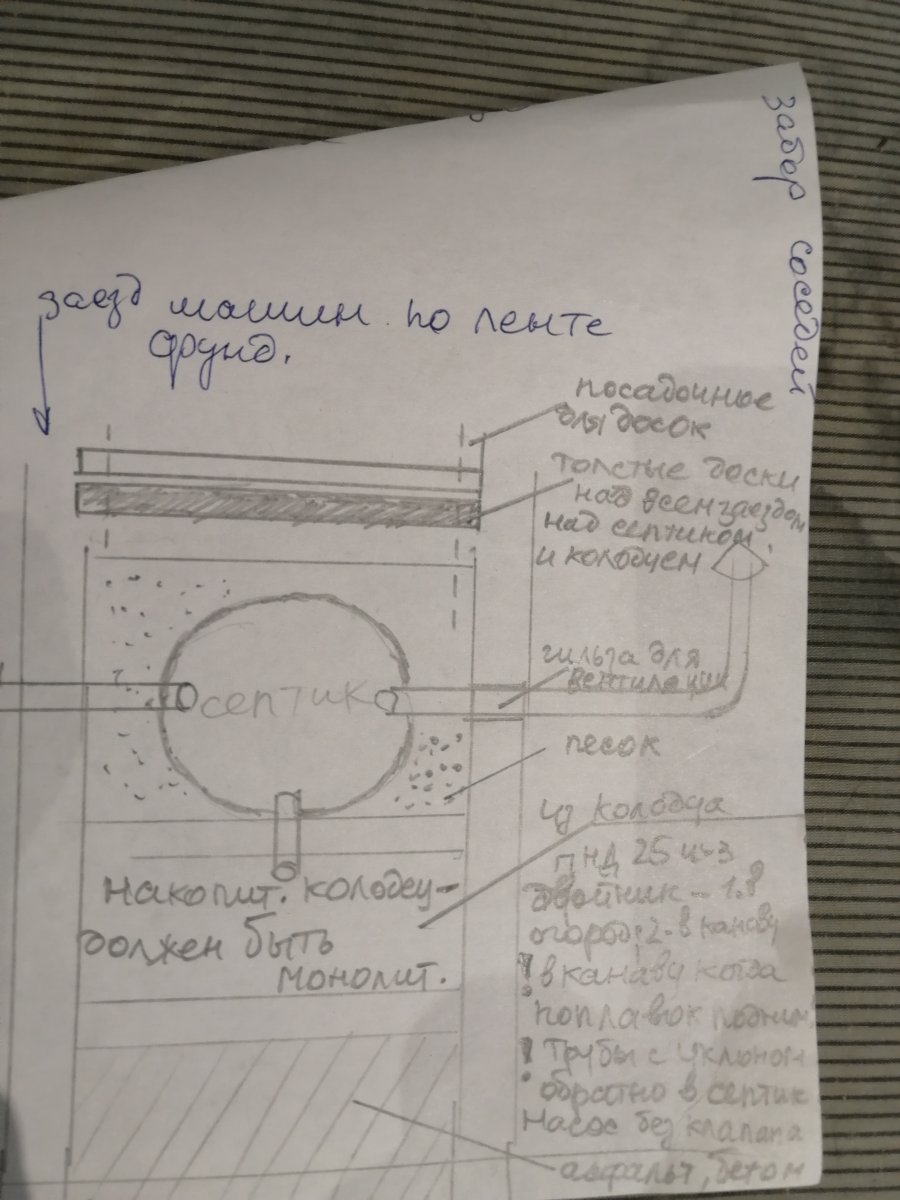 забор соседей
заезд машин по ленте
фунд.
посадочные
для досок
толстые доски
над всем заездом
над септиком
и колодцем
гильза для
вентиляции
септик
песок
из колодца
ПНД 25 из-з
двойник - 1.в
огород; 2-в канаву
! в канаву когда
поплавок подним
! Трубы с уклоном
обратно в септик
Насос без клапана
накопит. колодец-
должен быть
монолит.
асфальт, бетон